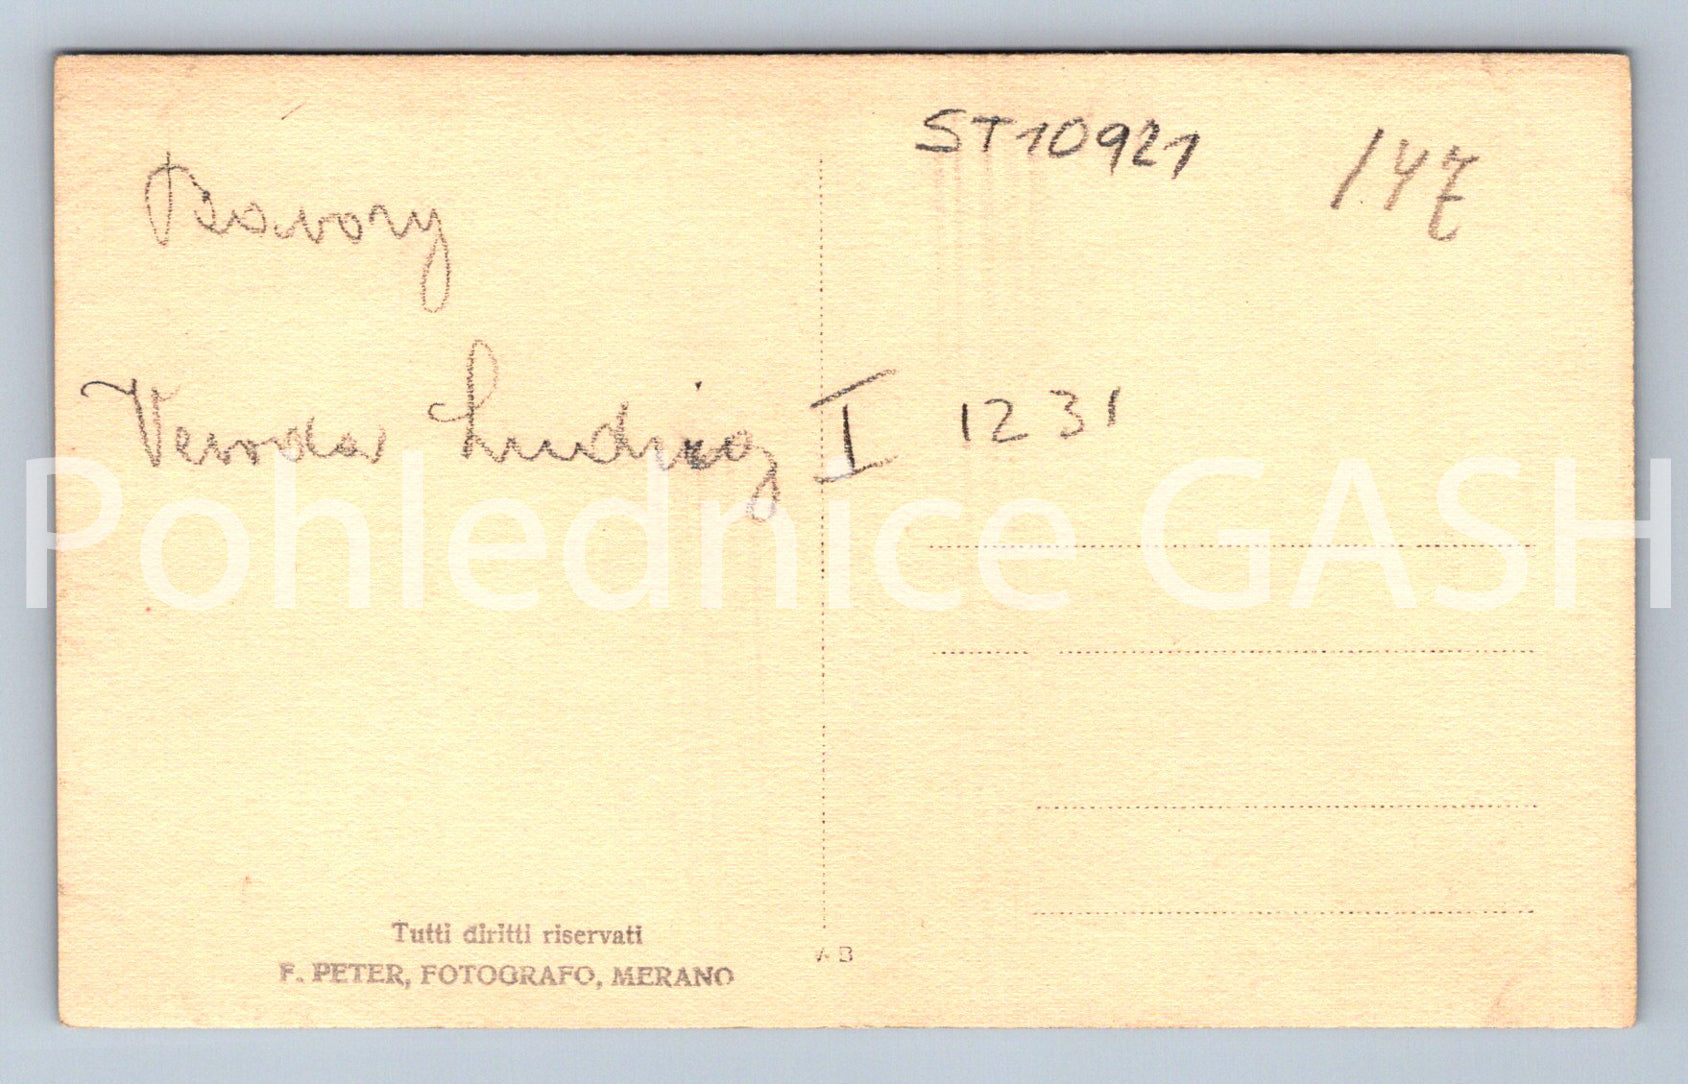 ST10921
147
Bavory
Vévoda Ludvig I 1231
Pohlednice GASH
Tutti diritti riservati
A B
F. PETER, FOTOGRAFO, MERANO